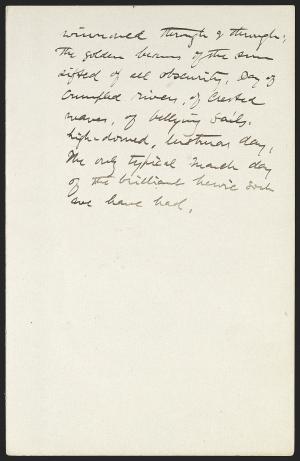 winnowed through & through;
the golden beams of the sun
sifted of all obscurity. Day of
crumpled rivers, of crested
waves, of bellying sails.
high-domed, lustrous day,
The only typical March day
of the brilliant heroic sort
we have had.